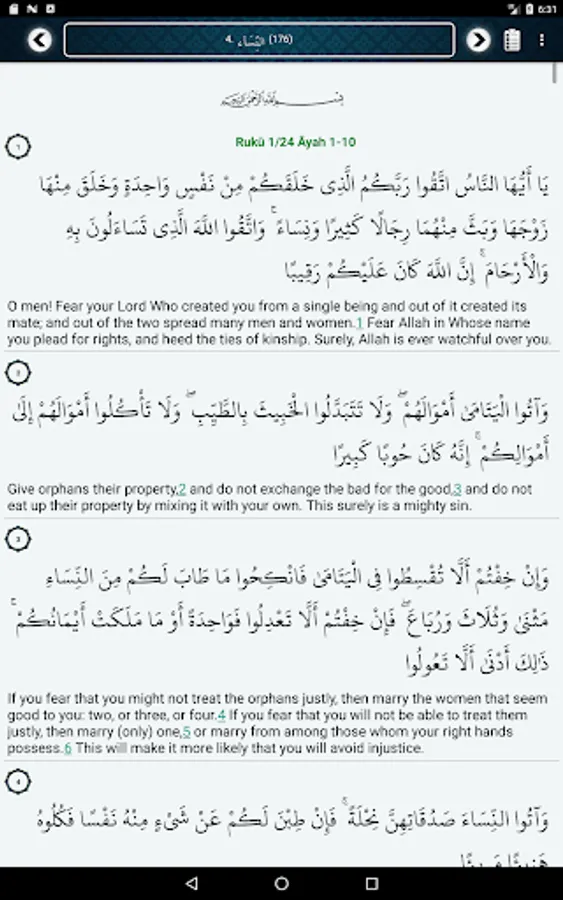 6:31
4. النِّسَاء (176)
بِسْمِ اللَّهِ الرَّحْمَٰنِ الرَّحِيمِ
Rukū 1/24 Āyah 1-10
1
يَا أَيُّهَا النَّاسُ اتَّقُوا رَبَّكُمُ الَّذِي خَلَقَكُمْ مِنْ نَفْسٍ وَاحِدَةٍ وَخَلَقَ مِنْهَا
زَوْجَهَا وَبَثَّ مِنْهُمَا رِجَالًا كَثِيرًا وَنِسَاءً ۚ وَاتَّقُوا اللَّهَ الَّذِي تَسَاءَلُونَ بِهِ
وَالْأَرْحَامَ ۚ إِنَّ اللَّهَ كَانَ عَلَيْكُمْ رَقِيبًا
O men! Fear your Lord Who created you from a single being and out of it created its
mate; and out of the two spread many men and women.1 Fear Allah in Whose name
you plead for rights, and heed the ties of kinship. Surely, Allah is ever watchful over you.
2
وَآتُوا الْيَتَامَىٰ أَمْوَالَهُمْ ۖ وَلَا تَتَبَدَّلُوا الْخَبِيثَ بِالطَّيِّبِ ۖ وَلَا تَأْكُلُوا أَمْوَالَهُمْ إِلَىٰ
أَمْوَالِكُمْ ۚ إِنَّهُ كَانَ حُوبًا كَبِيرًا
Give orphans their property,2 and do not exchange the bad for the good,3 and do not
eat up their property by mixing it with your own. This surely is a mighty sin.
3
وَإِنْ خِفْتُمْ أَلَّا تُقْسِطُوا فِي الْيَتَامَىٰ فَانْكِحُوا مَا طَابَ لَكُمْ مِنَ النِّسَاءِ
مَثْنَىٰ وَثُلَاثَ وَرُبَاعَ ۖ فَإِنْ خِفْتُمْ أَلَّا تَعْدِلُوا فَوَاحِدَةً أَوْ مَا مَلَكَتْ أَيْمَانُكُمْ ۚ
ذَٰلِكَ أَدْنَىٰ أَلَّا تَعُولُوا
If you fear that you might not treat the orphans justly, then marry the women that seem
good to you: two, or three, or four.4 If you fear that you will not be able to treat them
justly, then marry (only) one,5 or marry from among those whom your right hands
possess.6 This will make it more likely that you will avoid injustice.
4
وَآتُوا النِّسَاءَ صَدُقَاتِهِنَّ نِحْلَةً ۚ فَإِنْ طِبْنَ لَكُمْ عَنْ شَيْءٍ مِنْهُ نَفْسًا فَكُلُوهُ
هَنِيئًا مَرِيئًا